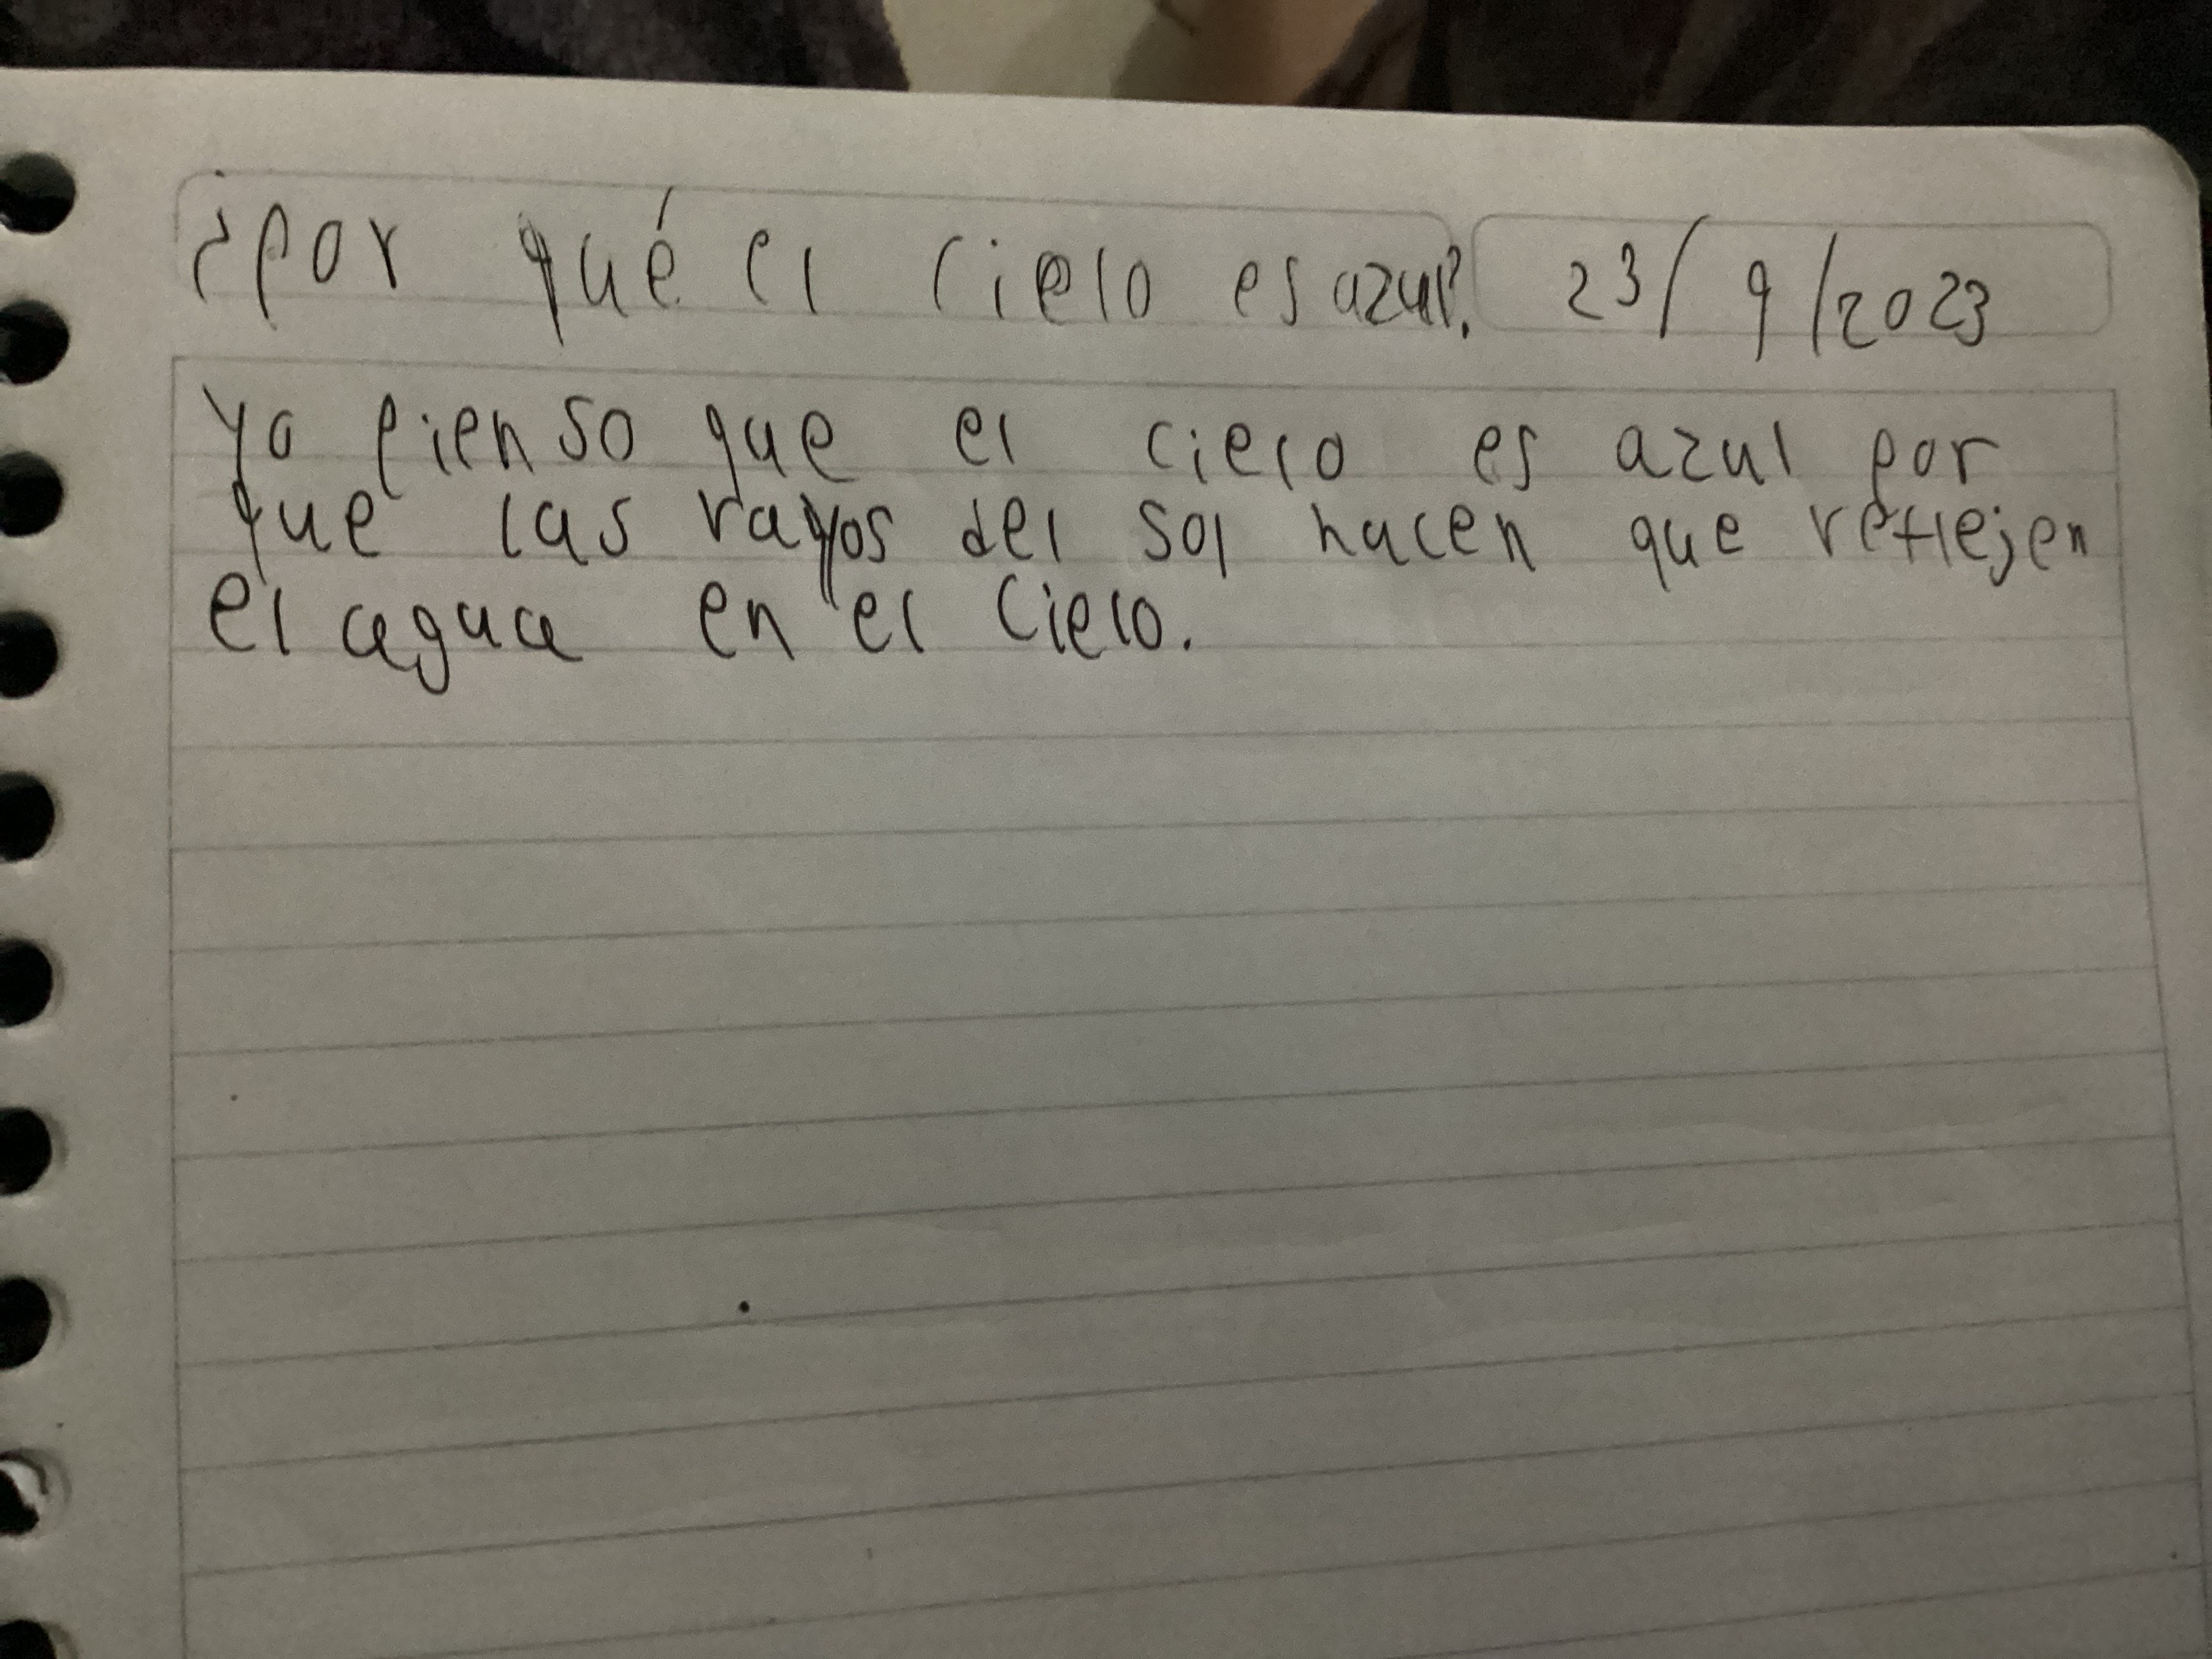 ¿Por qué el cielo es azul?. 23/9/2023
Yo pienso que el cielo es azul por
que las rayos del sol hacen que reflejen
el agua en el cielo.